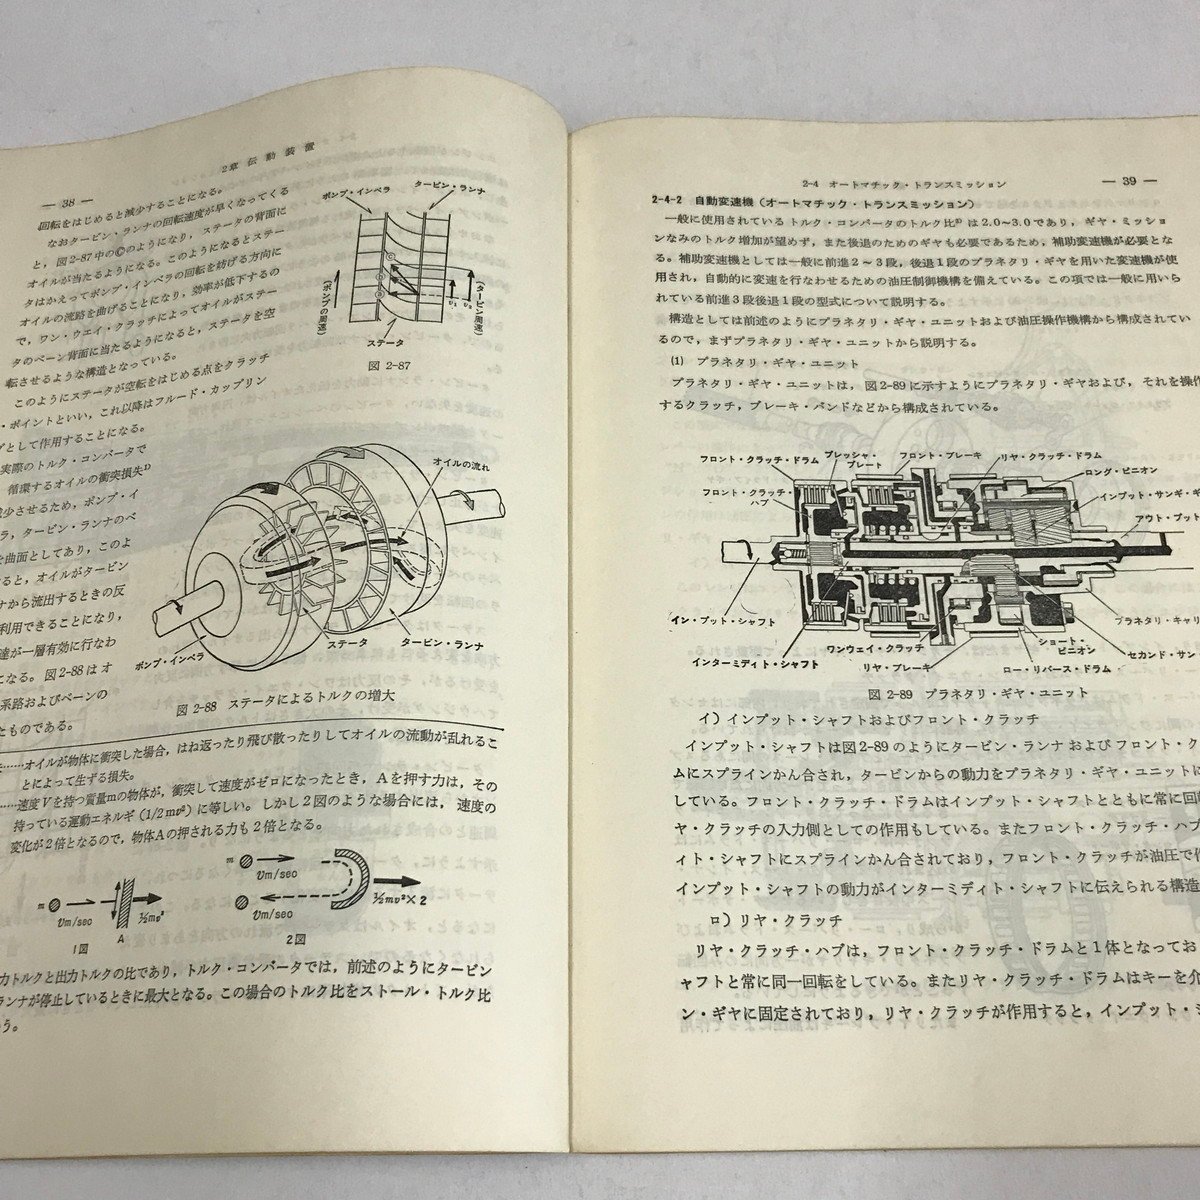 — 38 —
2章 伝動装置
回転をはじめると減少することになる。
なおタービン・ランナの回転速度が早くなってくる
と，図2-87中のⒸのようになり，ステータの背面に
オイルが当たるようになる。このようになるとステー
タはかえってポンプ・インペラの回転を妨げる方向に
オイルの流路を曲げることになり，効率が低下するの
で，ワン・ウエイ・クラッチによってオイルがステー
タのベーン背面に当たるようになると，ステータを空
転させるような構造となっている。
このようにステータが空転をはじめる点をクラッチ
・ポイントといい，これ以降はフルード・カップリン
グとして作用することになる。
実際のトルク・コンバータで
循環するオイルの衝突損失¹⁾
減少させるため，ポンプ・イ
ラ，タービン・ランナのベ
を曲面としてあり，このよ
ると，オイルがタービン
ナから流出するときの反
利用できることになり，
達が一層有効に行なわ
になる。図2-88はオ
系路およびベーンの
たものである。
ポンプ・インペラ
タービン・ランナ
(ポンプの周速)
(タービン周速)
ステータ
図 2-87
オイルの流れ
ポンプ・インペラ
ステータ
タービン・ランナ
図 2-88 ステータによるトルクの増大
……オイルが物体に衝突した場合，はね返ったり飛び散ったりしてオイルの流動が乱れるこ
とによって生ずる損失。
……速度Vを持つ質量mの物体が，衝突して速度がゼロになったとき，Aを押す力は，その
持っている運動エネルギ(1/2mv²)に等しい。しかし2図のような場合には，速度の
変化が2倍となるので，物体Aの押される力も2倍となる。
m
vm/sec
A
½mv²
1図
m
vm/sec
vm/sec
½mv²×2
2図
力トルクと出力トルクの比であり，トルク・コンバータでは，前述のようにタービン
ランナが停止しているときに最大となる。この場合のトルク比をストール・トルク比
う。
2-4 オートマチック・トランスミッション
— 39 —
2-4-2 自動変速機(オートマチック・トランスミッション)
一般に使用されているトルク・コンバータのトルク比³⁾は2.0~3.0であり，ギヤ・ミッショ
ンなみのトルク増加が望めず，また後退のためのギヤも必要であるため，補助変速機が必要とな
る。補助変速機としては一般に前進2～3段，後退1段のプラネタリ・ギヤを用いた変速機が使
用され，自動的に変速を行なわせるための油圧制御機構を備えている。この項では一般に用いら
れている前進3段後退1段の型式について説明する。
構造としては前述のようにプラネタリ・ギヤ・ユニットおよび油圧操作機構から構成されてい
るので，まずプラネタリ・ギヤ・ユニットから説明する。
(1) プラネタリ・ギヤ・ユニット
プラネタリ・ギヤ・ユニットは，図2-89に示すようにプラネタリ・ギヤおよび，それを操作
するクラッチ，ブレーキ・バンドなどから構成されている。
フロント・クラッチ・ドラム
プレッシャ・プレート
フロント・ブレーキ
リヤ・クラッチ・ドラム
ロング・ピニオン
フロント・クラッチ・ハブ
インプット・サンギ・ギ
アウト・プット
イン・プット・シャフト
インターミディト・シャフト
ワンウェイ・クラッチ
リヤ・ブレーキ
ショート・ピニオン
ロー・リバース・ドラム
プラネタリ・キャリ
セカンド・サン
図 2-89 プラネタリ・ギヤ・ユニット
イ) インプット・シャフトおよびフロント・クラッチ
インプット・シャフトは図2-89のようにタービン・ランナおよびフロント・ク
ムにスプラインかん合され，タービンからの動力をプラネタリ・ギヤ・ユニットに
している。フロント・クラッチ・ドラムはインプット・シャフトとともに常に回転
ヤ・クラッチの入力側としての作用もしている。またフロント・クラッチ・ハブ
ィト・シャフトにスプラインかん合されており，フロント・クラッチが油圧で作
インプット・シャフトの動力がインターミディト・シャフトに伝えられる構造
ロ) リヤ・クラッチ
リヤ・クラッチ・ハブは，フロント・クラッチ・ドラムと1体となってお
ャフトと常に同一回転をしている。またリヤ・クラッチ・ドラムはキーを介
ン・ギヤに固定されており，リヤ・クラッチが作用すると，インプット・シ